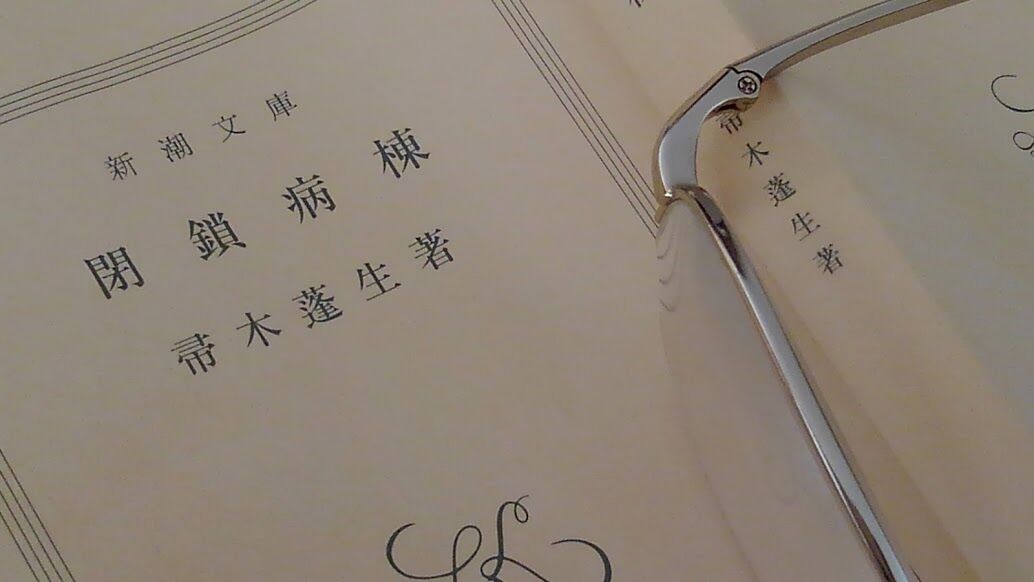 新潮文庫
閉鎖病棟
帚木蓬生著
帚木蓬生著